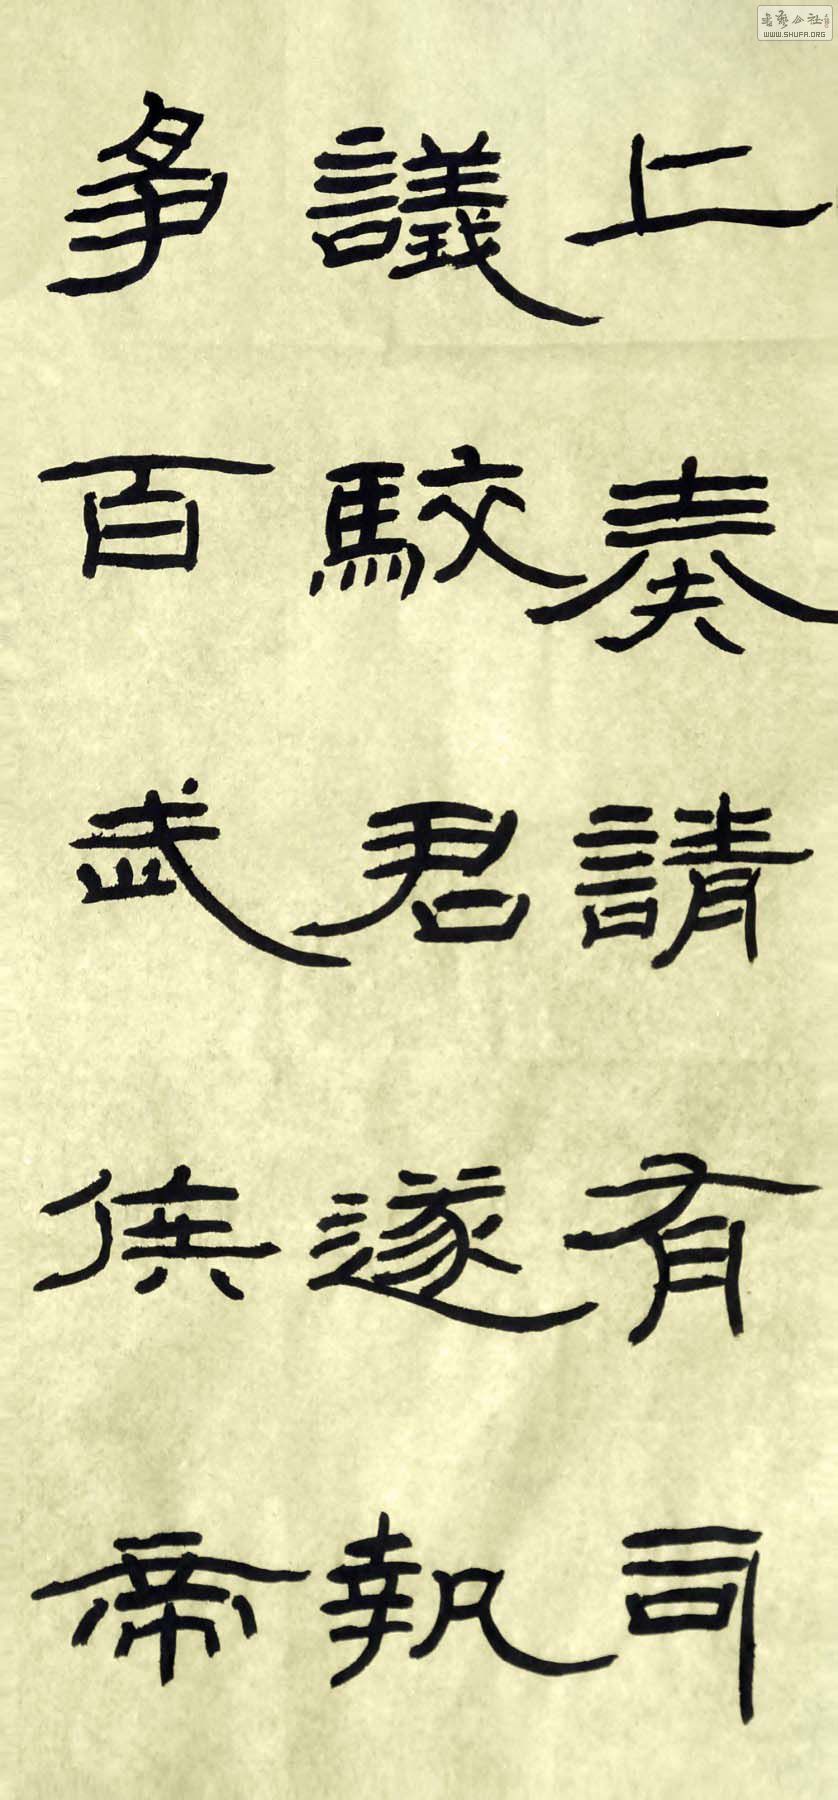 上奏請有司
議駮君遂執
爭百武侯帝
WWW.SHUFA.ORG